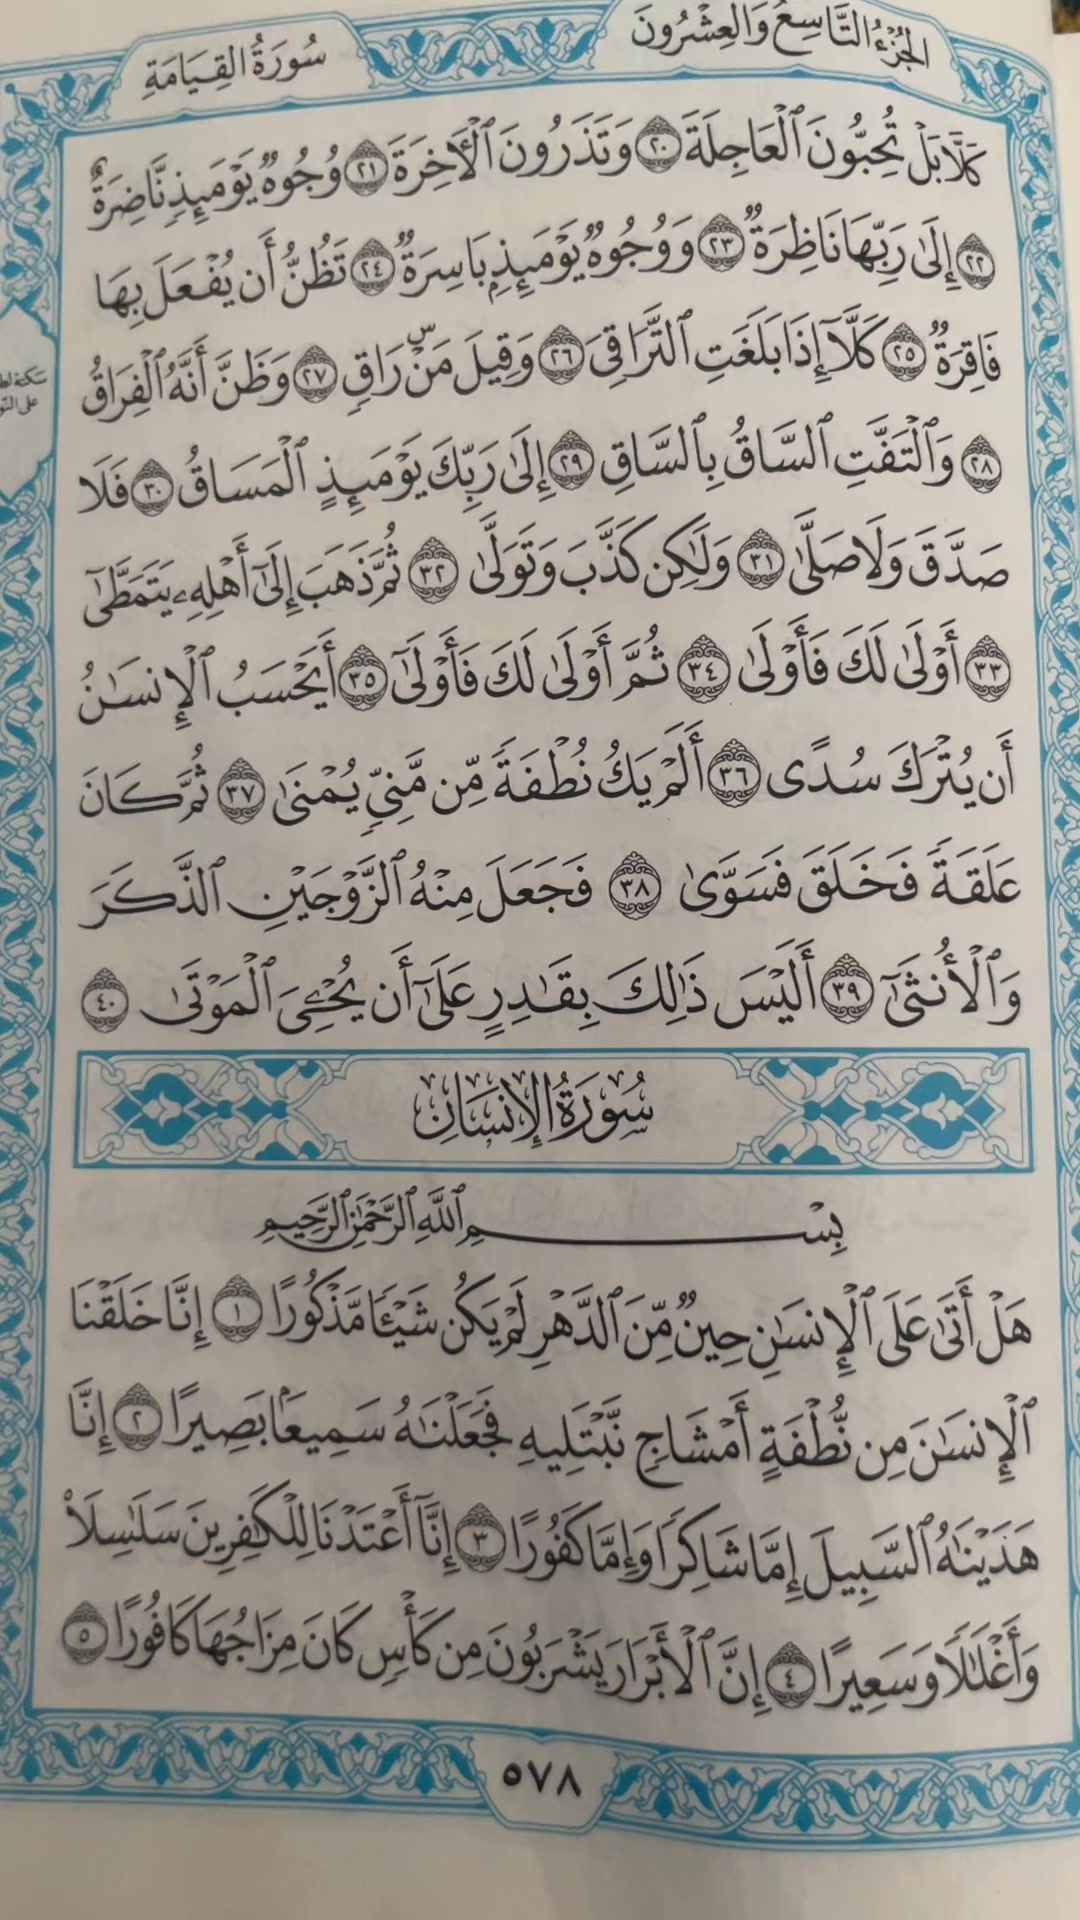 الجُزْءُ التَّاسِعُ وَالعِشْرُونَ
سُورَةُ القِيَامَةِ
كَلَّا بَلْ تُحِبُّونَ ٱلْعَاجِلَةَ ٢٠ وَتَذَرُونَ ٱلْأٓخِرَةَ ٢١ وُجُوهٌ يَوْمَئِذٍ نَّاضِرَةٌ
٢٢ إِلَىٰ رَبِّهَا نَاظِرَةٌ ٢٣ وَوُجُوهٌ يَوْمَئِذِۭ بَاسِرَةٌ ٢٤ تَظُنُّ أَن يُفْعَلَ بِهَا
فَاقِرَةٌ ٢٥ كَلَّآ إِذَا بَلَغَتِ ٱلتَّرَاقِيَ ٢٦ وَقِيلَ مَنْۜ رَاقٍ ٢٧ وَظَنَّ أَنَّهُ ٱلْفِرَاقُ
٢٨ وَٱلْتَفَّتِ ٱلسَّاقُ بِٱلسَّاقِ ٢٩ إِلَىٰ رَبِّكَ يَوْمَئِذٍ ٱلْمَسَاقُ ٣٠ فَلَا
صَدَّقَ وَلَا صَلَّىٰ ٣١ وَلَٰكِن كَذَّبَ وَتَوَلَّىٰ ٣٢ ثُمَّ ذَهَبَ إِلَىٰٓ أَهْلِهِۦ يَتَمَطَّىٰٓ
٣٣ أَوْلَىٰ لَكَ فَأَوْلَىٰ ٣٤ ثُمَّ أَوْلَىٰ لَكَ فَأَوْلَىٰٓ ٣٥ أَيَحْسَبُ ٱلْإِنسَٰنُ
أَن يُتْرَكَ سُدًى ٣٦ أَلَمْ يَكُ نُطْفَةً مِّن مَّنِيٍّ يُمْنَىٰ ٣٧ ثُمَّ كَانَ
عَلَقَةً فَخَلَقَ فَسَوَّىٰ ٣٨ فَجَعَلَ مِنْهُ ٱلزَّوْجَيْنِ ٱلذَّكَرَ
وَٱلْأُنثَىٰٓ ٣٩ أَلَيْسَ ذَٰلِكَ بِقَٰدِرٍ عَلَىٰٓ أَن يُحْـِۧيَ ٱلْمَوْتَىٰ ٤٠
سُورَةُ الإِنسَانِ
بِسْمِ ٱللَّهِ ٱلرَّحْمَٰنِ ٱلرَّحِيمِ
هَلْ أَتَىٰ عَلَى ٱلْإِنسَٰنِ حِينٌ مِّنَ ٱلدَّهْرِ لَمْ يَكُن شَيْـًٔا مَّذْكُورًا ١ إِنَّا خَلَقْنَا
ٱلْإِنسَٰنَ مِن نُّطْفَةٍ أَمْشَاجٍ نَّبْتَلِيهِ فَجَعَلْنَٰهُ سَمِيعًۢا بَصِيرًا ٢ إِنَّا
هَدَيْنَٰهُ ٱلسَّبِيلَ إِمَّا شَاكِرًا وَإِمَّا كَفُورًا ٣ إِنَّآ أَعْتَدْنَا لِلْكَٰفِرِينَ سَلَٰسِلَا۟
وَأَغْلَٰلًا وَسَعِيرًا ٤ إِنَّ ٱلْأَبْرَارَ يَشْرَبُونَ مِن كَأْسٍ كَانَ مِزَاجُهَا كَافُورًا ٥
٥٧٨